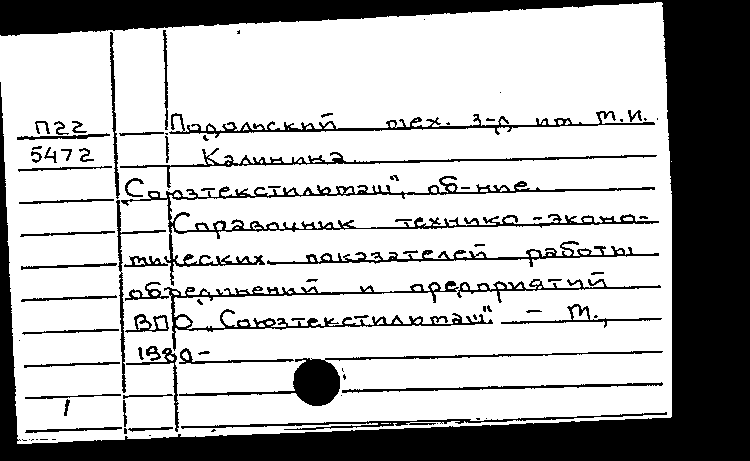 П22 Подольский мех. з-д им. М.И.
5472 Калинина.
"Союзтекстильмаш", об-ние.
Справочник технико-эконо-
мических показателей работы
объединений и предприятий
ВПО "Союзтекстильмаш". - М.,
1980-
1